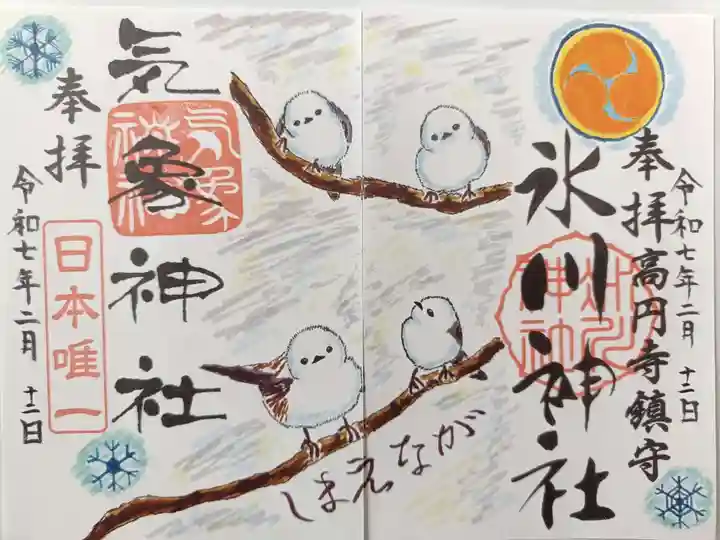 奉拝
高円寺鎮守
令和七年二月 十二日
氷川神社
しまえなが
気象神社
気象
神社
奉拝
日本唯一
令和七年二月 十二日